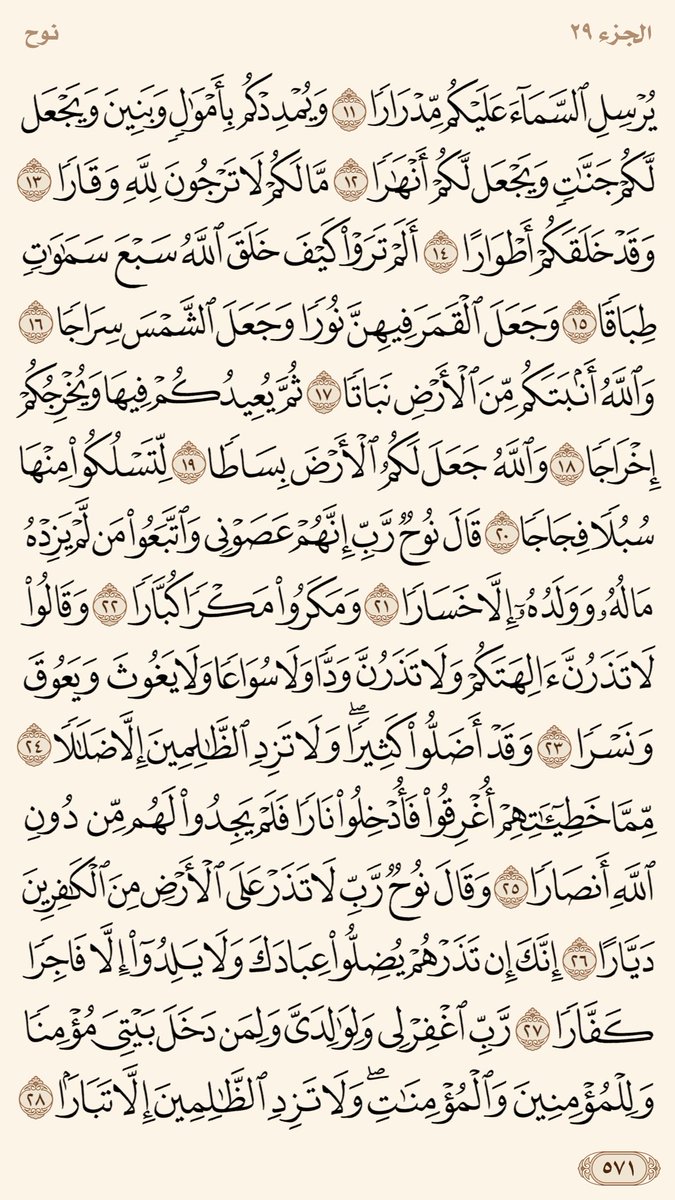 الجزء ٢٩
نوح
يُرْسِلِ ٱلسَّمَآءَ عَلَيْكُم مِّدْرَارًا ١١ وَيُمْدِدْكُم بِأَمْوَٰلٍ وَبَنِينَ وَيَجْعَل
لَّكُمْ جَنَّٰتٍ وَيَجْعَل لَّكُمْ أَنْهَٰرًا ١٢ مَّا لَكُمْ لَا تَرْجُونَ لِلَّهِ وَقَارًا ١٣
وَقَدْ خَلَقَكُمْ أَطْوَارًا ١٤ أَلَمْ تَرَوْا۟ كَيْفَ خَلَقَ ٱللَّهُ سَبْعَ سَمَٰوَٰتٍ
طِبَاقًا ١٥ وَجَعَلَ ٱلْقَمَرَ فِيهِنَّ نُورًا وَجَعَلَ ٱلشَّمْسَ سِرَاجًا ١٦
وَٱللَّهُ أَنۢبَتَكُم مِّنَ ٱلْأَرْضِ نَبَاتًا ١٧ ثُمَّ يُعِيدُكُمْ فِيهَا وَيُخْرِجُكُمْ
إِخْرَاجًا ١٨ وَٱللَّهُ جَعَلَ لَكُمُ ٱلْأَرْضَ بِسَاطًا ١٩ لِّتَسْلُكُوا۟ مِنْهَا
سُبُلًا فِجَاجًا ٢٠ قَالَ نُوحٌ رَّبِّ إِنَّهُمْ عَصَوْنِى وَٱتَّبَعُوا۟ مَن لَّمْ يَزِدْهُ
مَالُهُۥ وَوَلَدُهُۥٓ إِلَّا خَسَارًا ٢١ وَمَكَرُوا۟ مَكْرًا كُبَّارًا ٢٢ وَقَالُوا۟
لَا تَذَرُنَّ ءَالِهَتَكُمْ وَلَا تَذَرُنَّ وَدًّا وَلَا سُوَاعًا وَلَا يَغُوثَ وَيَعُوقَ
وَنَسْرًا ٢٣ وَقَدْ أَضَلُّوا۟ كَثِيرًا ۖ وَلَا تَزِدِ ٱلظَّٰلِمِينَ إِلَّا ضَلَٰلًا ٢٤
مِّمَّا خَطِيٓـَٰٔتِهِمْ أُغْرِقُوا۟ فَأُدْخِلُوا۟ نَارًا فَلَمْ يَجِدُوا۟ لَهُم مِّن دُونِ
ٱللَّهِ أَنصَارًا ٢٥ وَقَالَ نُوحٌ رَّبِّ لَا تَذَرْ عَلَى ٱلْأَرْضِ مِنَ ٱلْكَٰفِرِينَ
دَيَّارًا ٢٦ إِنَّكَ إِن تَذَرْهُمْ يُضِلُّوا۟ عِبَادَكَ وَلَا يَلِدُوٓا۟ إِلَّا فَاجِرًا
كَفَّارًا ٢٧ رَّبِّ ٱغْفِرْ لِى وَلِوَٰلِدَىَّ وَلِمَن دَخَلَ بَيْتِىَ مُؤْمِنًا
وَلِلْمُؤْمِنِينَ وَٱلْمُؤْمِنَٰتِ ۖ وَلَا تَزِدِ ٱلظَّٰلِمِينَ إِلَّا تَبَارًۢا ٢٨
٥٧١